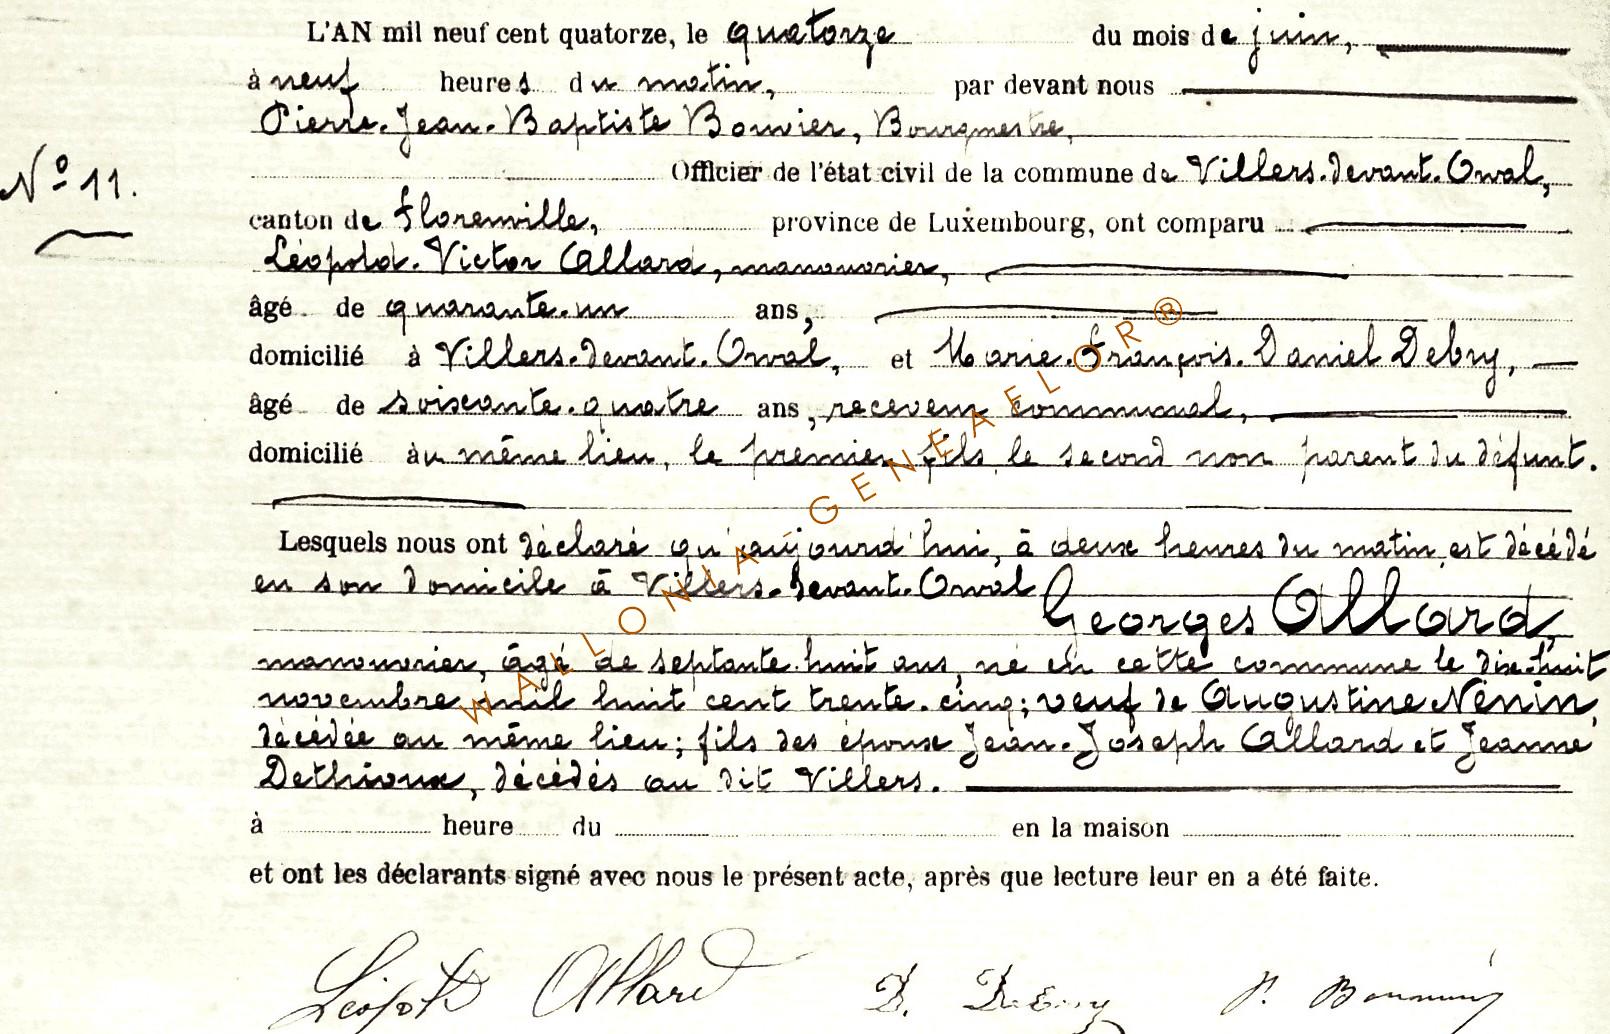 L'AN mil neuf cent quatorze, le quatorze du mois de juin,
à neuf heures du matin, par devant nous
Pierre-Jean-Baptiste Bouvier, Bourgmestre,
Officier de l'état civil de la commune de Villers-devant-Orval,
N° 11.
canton de Florenville, province de Luxembourg, ont comparu
Léopold-Victor Allard, manouvrier,
âgé de quarante-un ans,
domicilié à Villers-devant-Orval, et Marie-François-Daniel Debry,
âgé de soixante-quatre ans, receveur communal,
domicilié au même lieu, le premier fils, le second non parent du défunt.
Lesquels nous ont déclaré qu'aujourd'hui, à deux heures du matin, est décédé
en son domicile à Villers-devant-Orval
Georges Allard,
manouvrier, âgé de septante-huit ans, né en cette commune le dix-huit
novembre mil huit cent trente-cinq; veuf de Augustine Nénin,
décédée au même lieu; fils des époux Jean-Joseph Allard et Jeanne
Dethioux, décédés au dit Villers.
à heure du en la maison
et ont les déclarants signé avec nous le présent acte, après que lecture leur en a été faite.
Léopold Allard D. Debry
WALLONIA GENEAELOR®